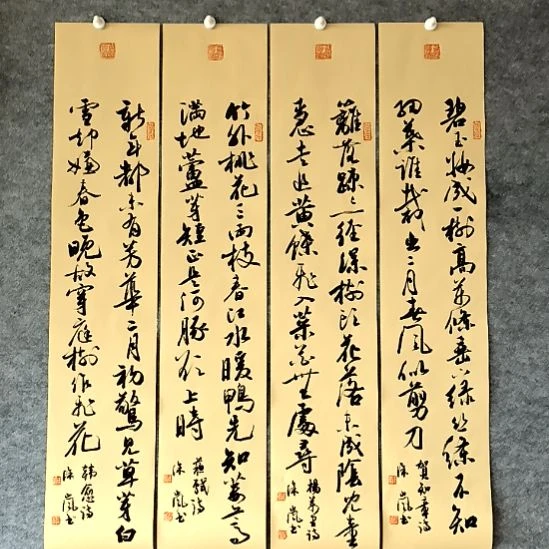 碧玉妝成一樹高萬條垂下綠絲絛不知
細葉誰裁出二月春風似剪刀
賀知章詩
嵐书
籬落疎疎一徑深樹頭花落未成陰兒童
急走追黃蝶飛入菜花無處尋
楊萬里詩
嵐书
竹外桃花三兩枝春江水暖鴨先知蔞蒿
滿地蘆芽短正是河豚欲上時
蘇軾詩
嵐书
新年都未有芳華二月初驚見草芽白
雪却嫌春色晚故穿庭樹作飛花
韓愈詩
嵐书